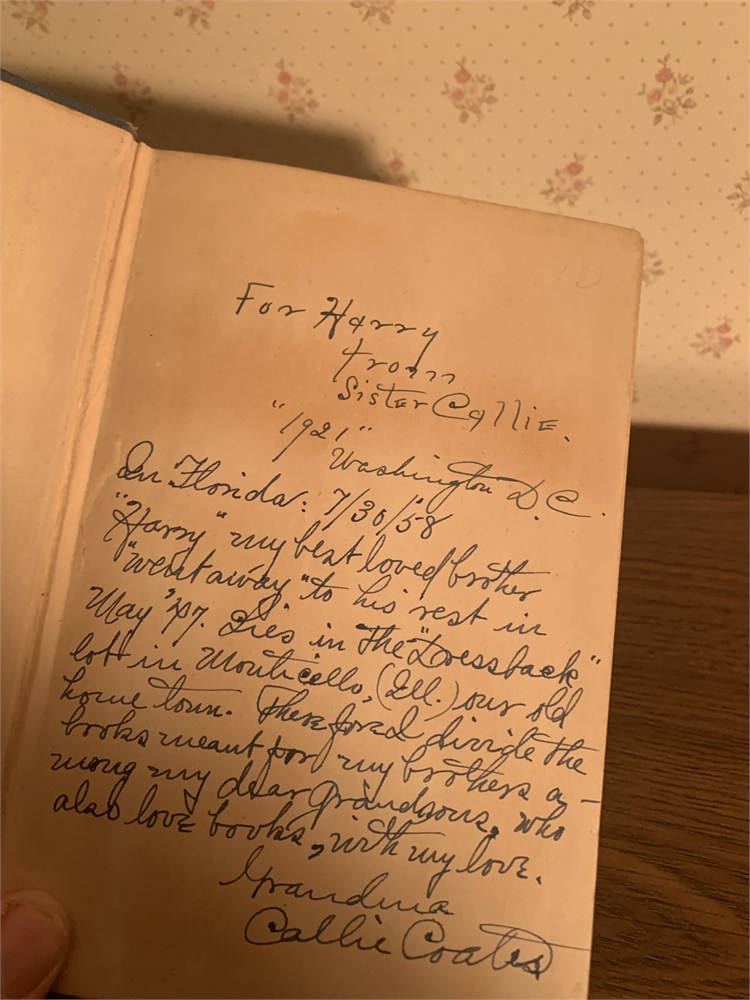 For Harry
from
Sister Callie.
"1921"
Washington D.C.
In Florida: 7/30/'58
"Harry" my best loved brother
"went away" to his rest in
May '47. Lies in the "Dressback"
lot in Monticello, (Ill.) our old
home town. Therefore I divide the
books meant for my brothers a-
mong my dear grandsons, who
also love books, with my love.
Grandma
Callie Coates